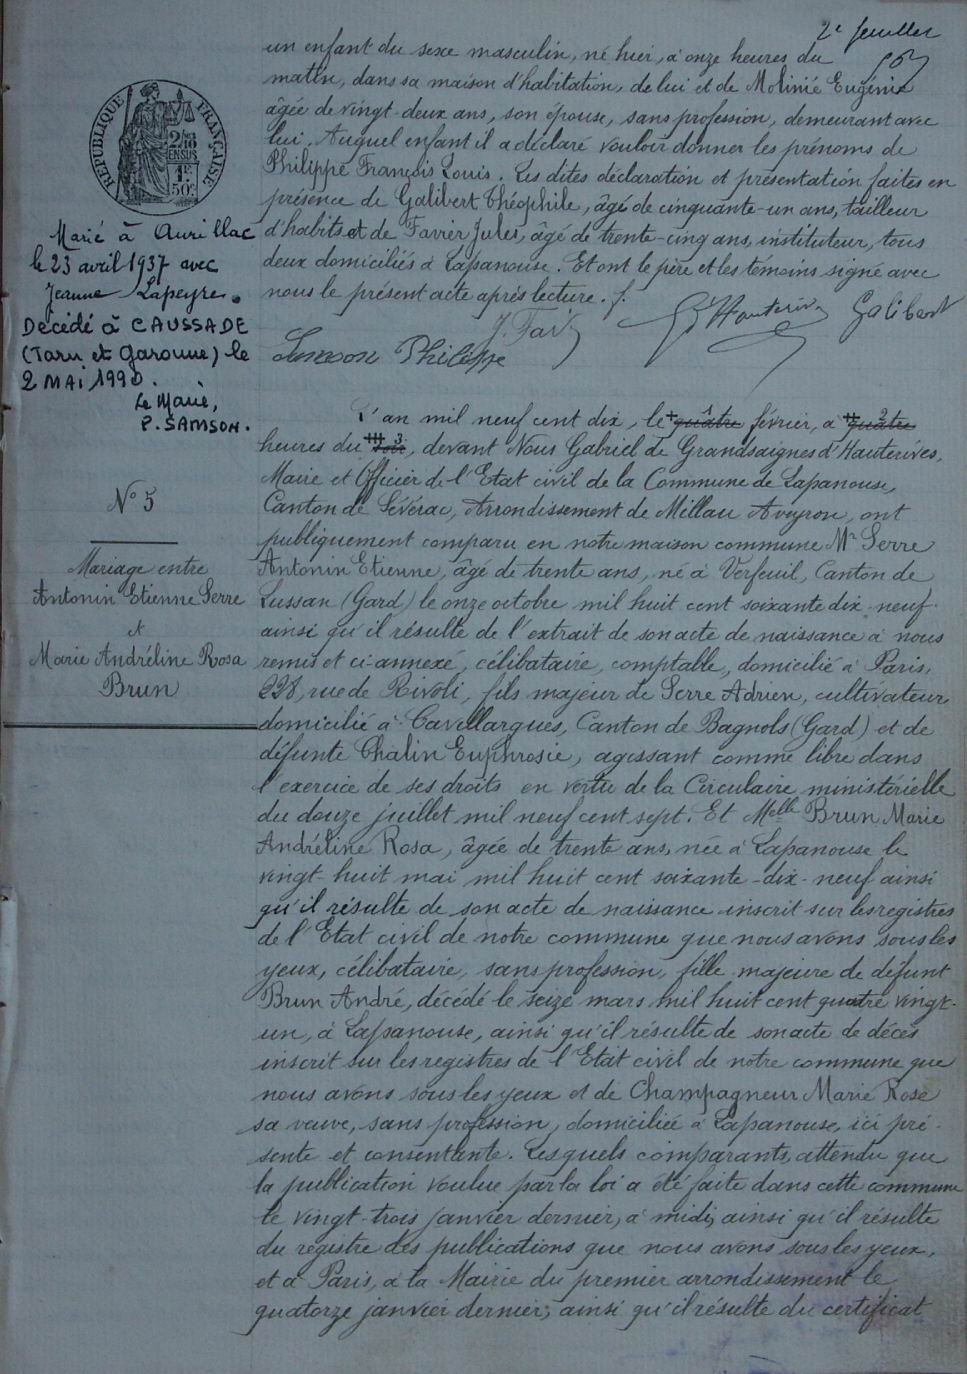 2e feuillet
un enfant du sexe masculin, né hier, à onze heures du
matin, dans sa maison d'habitation, de lui et de Molinié Eugénie
âgée de vingt-deux ans, son épouse, sans profession, demeurant avec
lui. Auquel enfant il a déclaré vouloir donner les prénoms de
Philippe François Louis. Les dites déclaration et présentation faites en
présence de Galibert Théophile, âgé de cinquante-un ans, tailleur
d'habits et de Favier Jules, âgé de trente-cinq ans, instituteur, tous
deux domiciliés à Lapanouse. Et ont le père et les témoins signé avec
nous le présent acte après lecture.
G d'Hauterives Galibert
Philippe
RÉPUBLIQUE FRANÇAISE
2/10 EN SUS
1F 50c
Marié à Aurillac
le 23 avril 1937 avec
Jeanne Lapeyre.
Decédé à CAUSSADE
(Tarn et Garonne) le
2 MAI 1990.
Le Maire,
P. SAMSON.
N° 5
Mariage entre
Antonin Etienne Serre
et
Marie Andréline Rosa
Brun
L'an mil neuf cent dix, le + quatre 1 février, à ++ quatre 2
heures du +++ soir 3, devant Nous Gabriel de Grandsaignes d'Hauterives,
Maire et Officier de l'Etat civil de la Commune de Lapanouse,
Canton de Sévérac, Arrondissement de Millau Aveyron, ont
publiquement comparu en notre maison commune Mr Serre
Antonin Etienne, âgé de trente ans, né à Verfeuil, Canton de
Lussan (Gard) le onze octobre mil huit cent soixante dix-neuf
ainsi qu'il résulte de l'extrait de son acte de naissance à nous
remis et ci-annexé, célibataire, comptable, domicilié à Paris,
228, rue de Rivoli, fils majeur de Serre Adrien, cultivateur
domicilié à Cavillargues, Canton de Bagnols (Gard) et de
défunte Chalin Euphrosie, agissant comme libre dans
l'exercice de ses droits en vertu de la Circulaire ministérielle
du douze juillet mil neuf cent sept. Et Melle Brun Marie
Andréline Rosa, âgée de trente ans, née à Lapanouse le
vingt-huit mai mil huit cent soixante-dix-neuf ainsi
qu'il résulte de son acte de naissance inscrit sur les registres
de l'Etat civil de notre commune que nous avons sous les
yeux, célibataire, sans profession, fille majeure de défunt
Brun André, décédé le seize mars mil huit cent quatre vingt-
un, à Lapanouse, ainsi qu'il résulte de son acte de décès
inscrit sur les registres de l'Etat civil de notre commune que
nous avons sous les yeux et de Champagneur Marie Rose
sa veuve, sans profession, domiciliée à Lapanouse, ici pré-
sente et consentente. Lesquels comparants, attendu que
la publication voulue par la loi a été faite dans cette commune
le vingt-trois janvier dernier, à midi, ainsi qu'il résulte
du registre des publications que nous avons sous les yeux,
et à Paris, à la Mairie du premier arrondissement le
quatorze janvier dernier, ainsi qu'il résulte du certificat